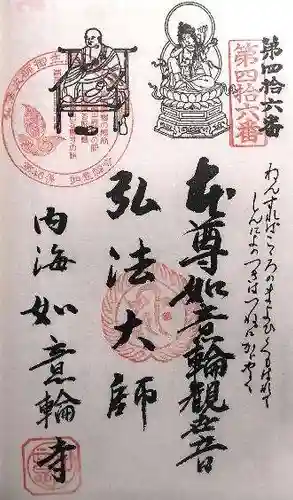 第四拾六番
第四拾六番
ねんすればこころのまよひくもはれて
しんによのつきはつねにかがやく
本尊如意輪觀世音
弘法大師
内海如意輪寺